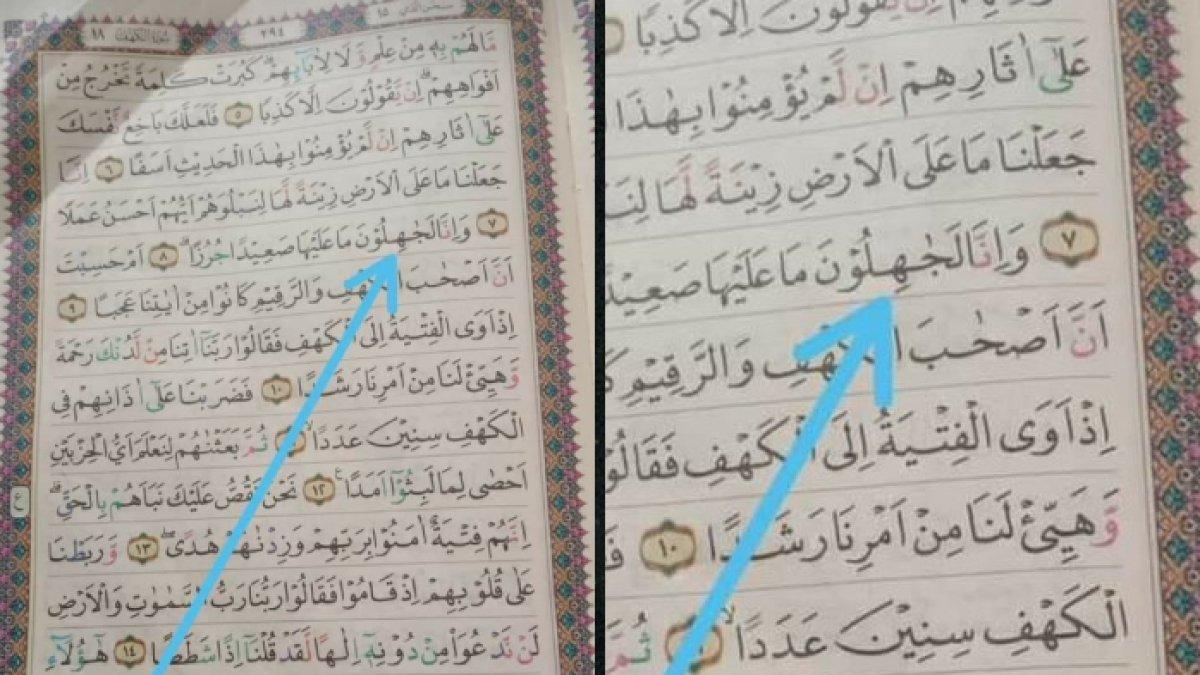 سبحن الذي ١٥ ٢٩٤ سورة الكهف ١٨
مَّا لَهُمْ بِهٖ مِنْ عِلْمٍ وَّلَا لِاٰبَاۤىِٕهِمْۗ كَبُرَتْ كَلِمَةً تَخْرُجُ مِنْ
اَفْوَاهِهِمْۗ اِنْ يَّقُوْلُوْنَ اِلَّا كَذِبًا ٥ فَلَعَلَّكَ بَاخِعٌ نَّفْسَكَ
عَلٰٓى اٰثَارِهِمْ اِنْ لَّمْ يُؤْمِنُوْا بِهٰذَا الْحَدِيْثِ اَسَفًا ٦ اِنَّا
جَعَلْنَا مَا عَلَى الْاَرْضِ زِيْنَةً لَّهَا لِنَبْلُوَهُمْ اَيُّهُمْ اَحْسَنُ عَمَلًا
٧ وَاِنَّا لَجٰهِلُوْنَ مَا عَلَيْهَا صَعِيْدًا جُرُزًاۗ ٨ اَمْ حَسِبْتَ
اَنَّ اَصْحٰبَ الْكَهْفِ وَالرَّقِيْمِ كَانُوْا مِنْ اٰيٰتِنَا عَجَبًا ٩
اِذْ اَوَى الْفِتْيَةُ اِلَى الْكَهْفِ فَقَالُوْا رَبَّنَآ اٰتِنَا مِنْ لَّدُنْكَ رَحْمَةً
وَّهَيِّئْ لَنَا مِنْ اَمْرِنَا رَشَدًا ١٠ فَضَرَبْنَا عَلٰٓى اٰذَانِهِمْ فِى
الْكَهْفِ سِنِيْنَ عَدَدًاۙ ثُمَّ بَعَثْنٰهُمْ لِنَعْلَمَ اَيُّ الْحِزْبَيْنِ
اَحْصٰى لِمَا لَبِثُوْٓا اَمَدًا ١٢ نَحْنُ نَقُصُّ عَلَيْكَ نَبَاَهُمْ بِالْحَقِّۗ
اِنَّهُمْ فِتْيَةٌ اٰمَنُوْا بِرَبِّهِمْ وَزِدْنٰهُمْ هُدًىۖ ١٣ وَّرَبَطْنَا
عَلٰى قُلُوْبِهِمْ اِذْ قَامُوْا فَقَالُوْا رَبُّنَا رَبُّ السَّمٰوٰتِ وَالْاَرْضِ
لَنْ نَّدْعُوَا۟ مِنْ دُوْنِهٖٓ اِلٰهًا لَّقَدْ قُلْنَآ اِذًا شَطَطًا ١٤ هٰٓؤُلَاۤءِ
اِنْ يَّقُوْلُوْنَ اِلَّا كَذِبًا
عَلٰٓى اٰثَارِهِمْ اِنْ لَّمْ يُؤْمِنُوْا بِهٰذَا
جَعَلْنَا مَا عَلَى الْاَرْضِ زِيْنَةً لَّهَا
٧ وَاِنَّا لَجٰهِلُوْنَ مَا عَلَيْهَا
اَنَّ اَصْحٰبَ الْكَهْفِ وَالرَّقِيْمِ
اِذْ اَوَى الْفِتْيَةُ اِلَى الْكَهْفِ
وَّهَيِّئْ لَنَا مِنْ اَمْرِنَا رَشَدًا ١٠
الْكَهْفِ سِنِيْنَ عَدَدًاۙ ثُمَّ